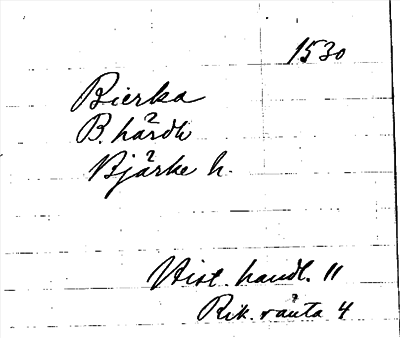 1530
Bierka
B. hårdh
Bjårke h.
Hist. handl. 11
Rik. ränta 4